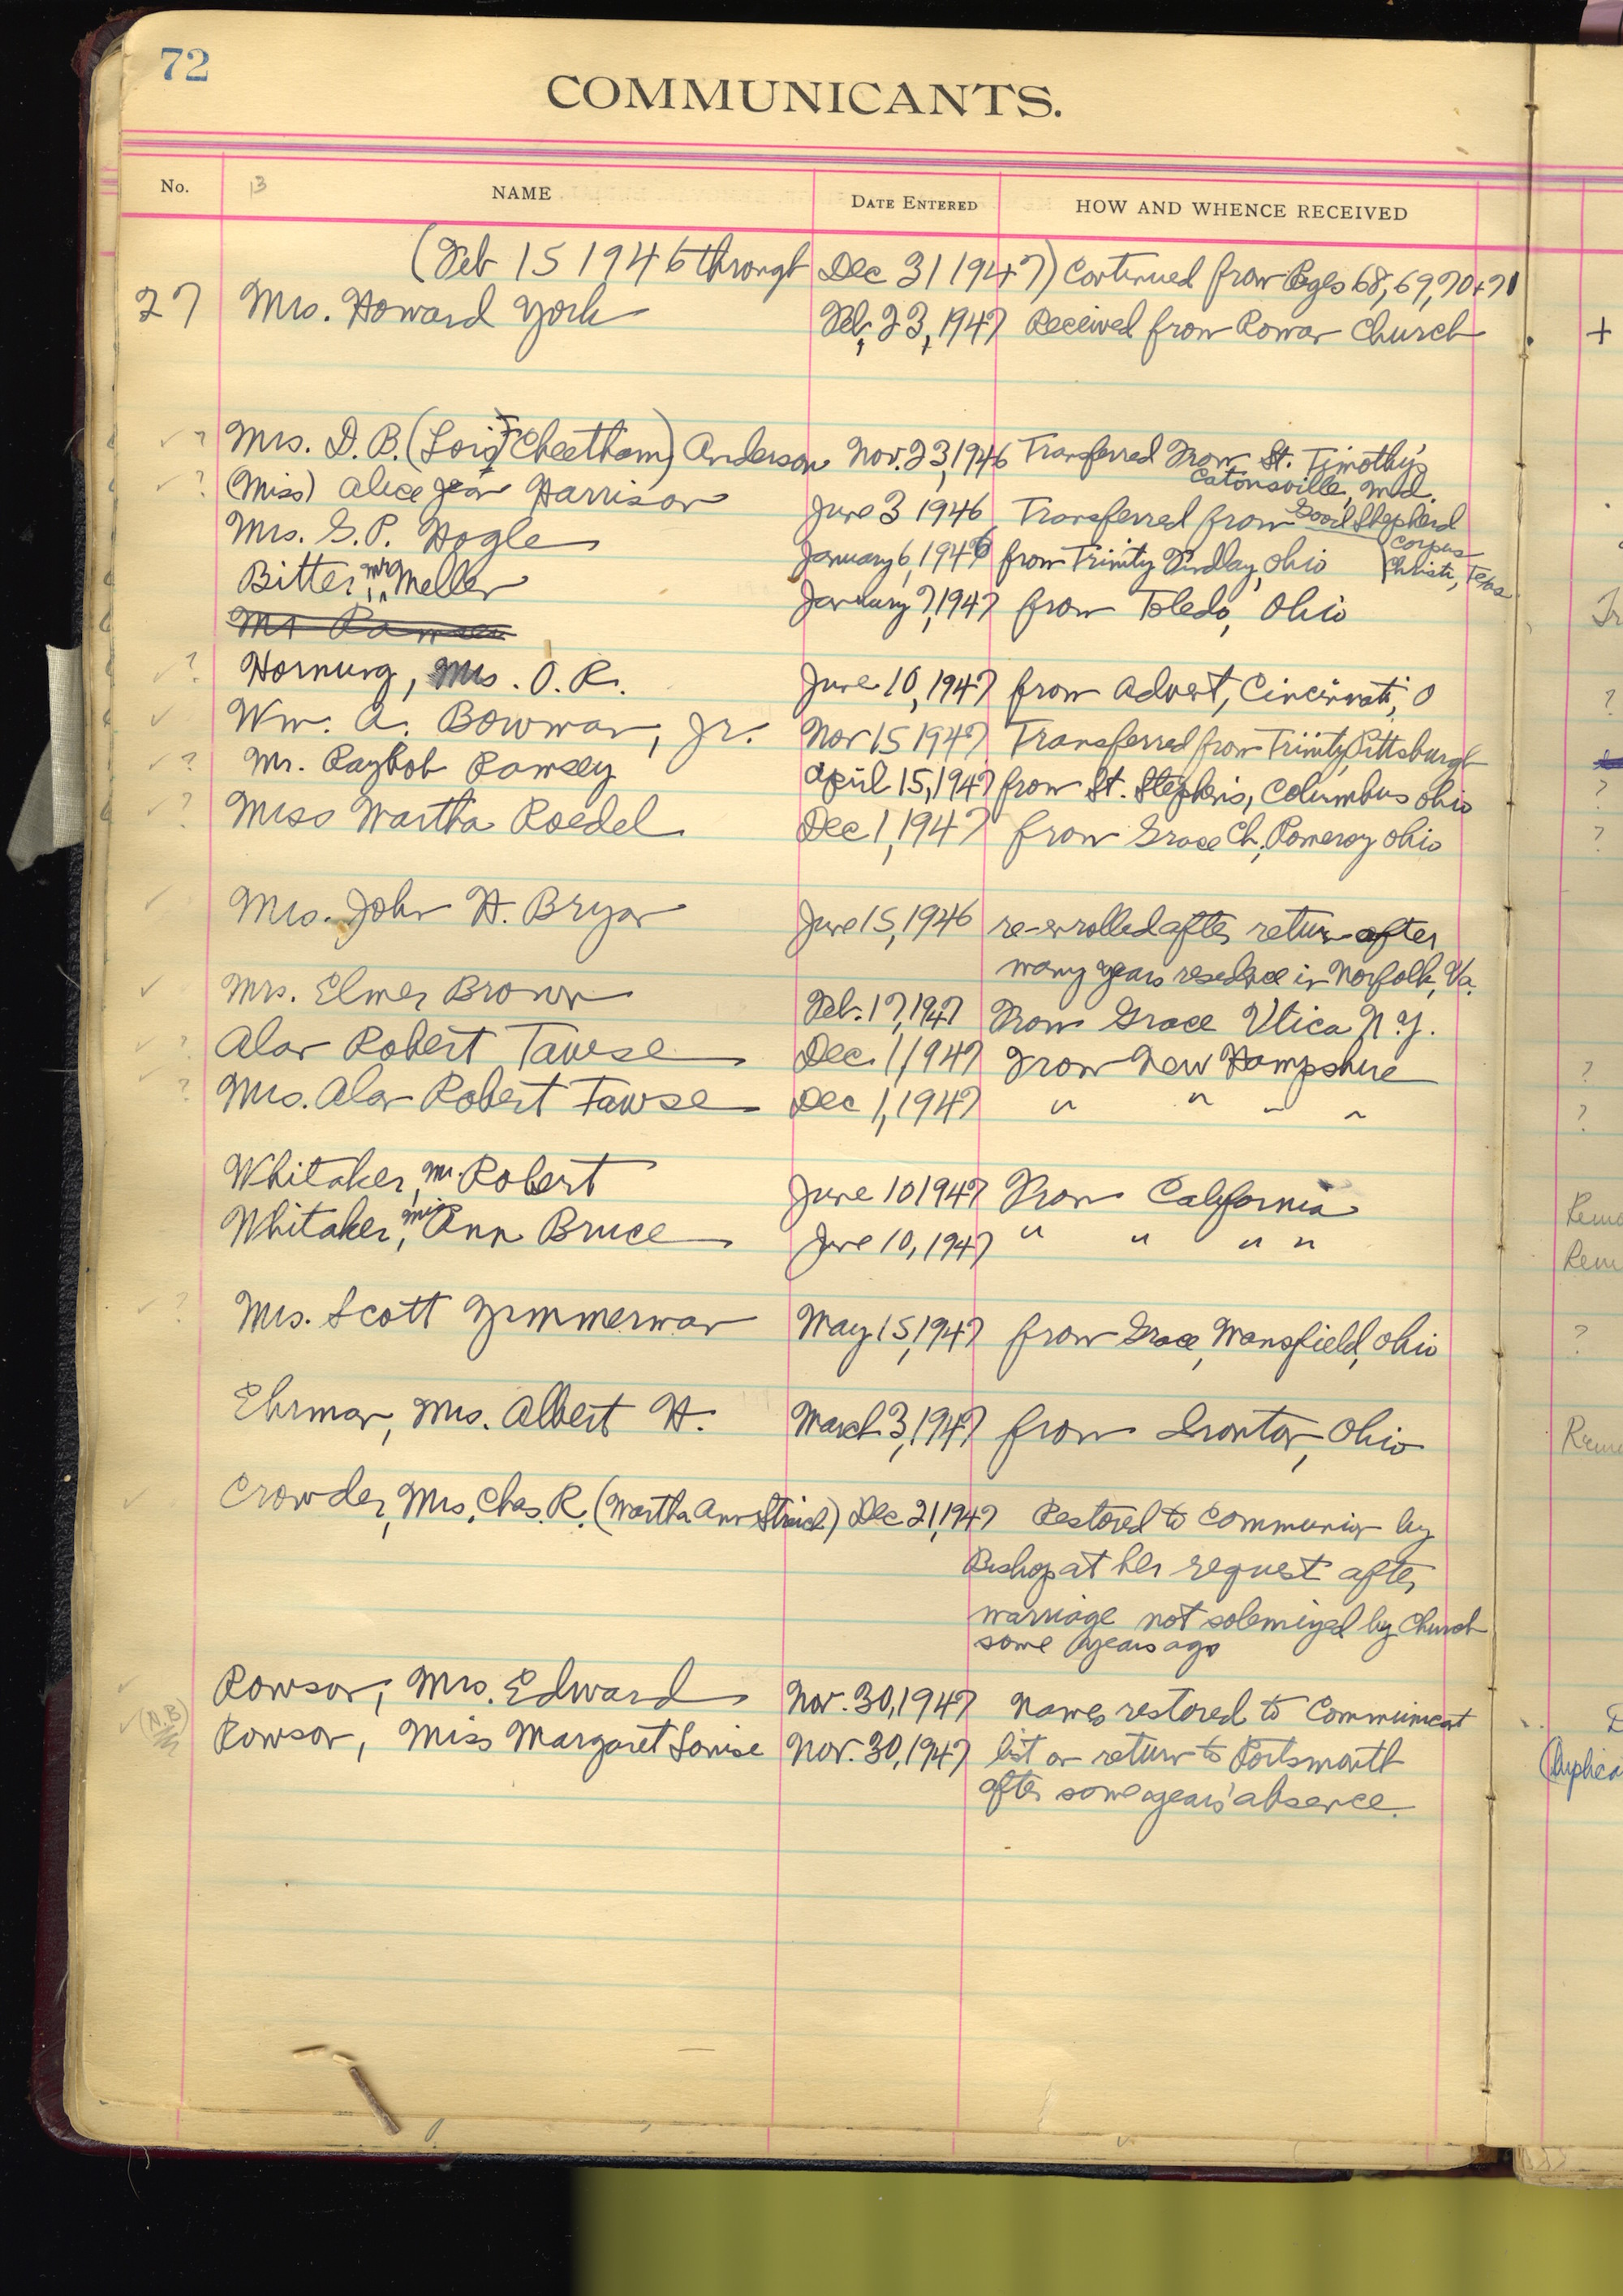 72
COMMUNICANTS.
No. 13 NAME DATE ENTERED HOW AND WHENCE RECEIVED
(Feb 15 1946 through Dec 31 1947) Continued from Pages 68, 69, 70 + 71
27 Mrs. Howard York Feb. 23, 1947 Received from Roman Church +
✓ ? Mrs. D. B. (Lois F Cheetham) Anderson Nov. 23, 1946 Transferred From St. Timothy's
Catonsville, Md.
✓ ? (Miss) Alice Jean Harrison June 3 1946 Transferred from Good Shepherd
(Corpus
Christi, Texas
Mrs. G. P. Hogle January 6, 1946 from Trinity Findlay, Ohio
Bitter, Mr. Meller January 7, 1947 from Toledo, Ohio
✓ ? Hornung, Mrs. O. R. June 10, 1947 from Advent, Cincinnati, O ?
✓ Wm. A. Bowman, Jr. Nov 15 1947 Transferred from Trinity, Pittsburgh
✓ ? Mr. Raybob Ramsey April 15, 1947 from St. Stephen's, Columbus Ohio ?
✓ ? Miss Martha Roedel Dec 1, 1947 from Grace Ch, Pomeroy Ohio ?
✓ Mrs. John H. Bryan June 15, 1946 re-enrolled after return after
many years residence in Norfolk, Va.
✓ Mrs. Elmer Brown Feb. 17, 1947 From Grace Utica N.Y.
✓ ? Alan Robert Tawse Dec. 1 1947 From New Hampshire ?
✓ ? Mrs. Alan Robert Tawse Dec 1, 1947 " " " " ?
Whitaker, Mr. Robert June 10 1947 From California
Whitaker, Miss Ann Bruce June 10, 1947 " " " "
✓ ? Mrs. Scott Zimmerman May 15, 1947 from Grace, Mansfield, Ohio ?
Ehrman, Mrs. Albert H. March 3, 1947 from Ironton, Ohio
✓ Crowder, Mrs. Chas. R. (Martha Ann Strich) Dec 21, 1947 Restored to Communion by
Bishop at her request after
marriage not solemnized by Church
some years ago
✓ Rowson, Mrs. Edward Nov. 30, 1947 Names restored to Communicant
✓ (N.B) Rowson, Miss Margaret Louise Nov. 30, 1947 list on return to Portsmouth
after some years' absence.